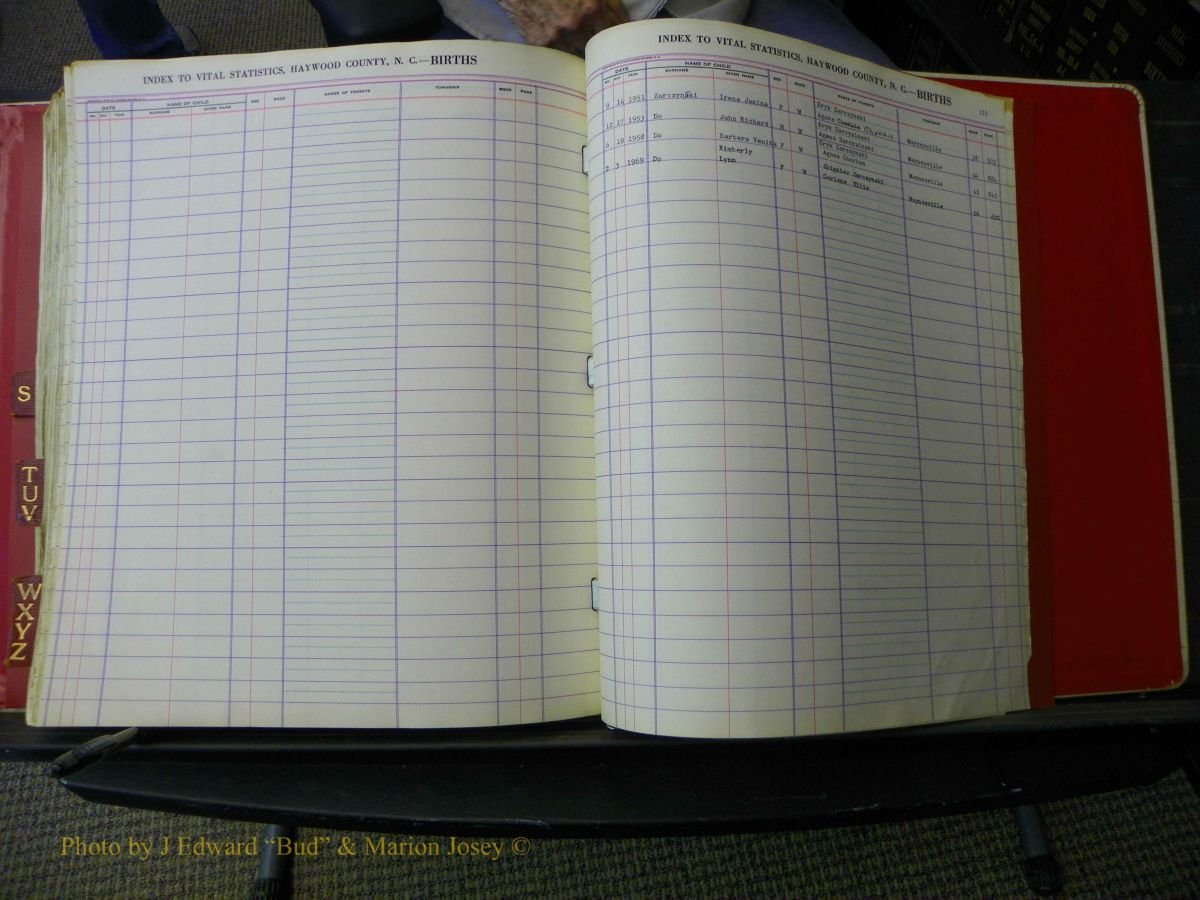 INDEX TO VITAL STATISTICS, HAYWOOD COUNTY, N. C.—BIRTHS
DATE NAME OF CHILD SEX RACE NAMES OF PARENTS TOWNSHIP BOOK PAGE
MO. DAY YEAR SURNAME GIVEN NAME
INDEX TO VITAL STATISTICS, HAYWOOD COUNTY, N. C.—BIRTHS
DATE NAME OF CHILD SEX RACE NAMES OF PARENTS TOWNSHIP BOOK PAGE
MO. DAY YEAR SURNAME GIVEN NAME
9 14 1952 Zarczynski Irena Janina F W Eryk Zarczynski
Agnes Waynesville 38
12 17 1953 Do John Richard M W Eryk Zarzysinski
Agnes Zarzysinski Waynesville 40
6 19 1958 Do Barbara Venita F W Eryk Zarczynski
Agnes Cherbaa Waynesville 45 645
2 3 1969 Do Kimberly
Lynn F W Zbigniew Zarczynski
Darlene Ellis Waynesville 56 420
S
TUV
WXYZ
Photo by J Edward “Bud” & Marion Josey ©